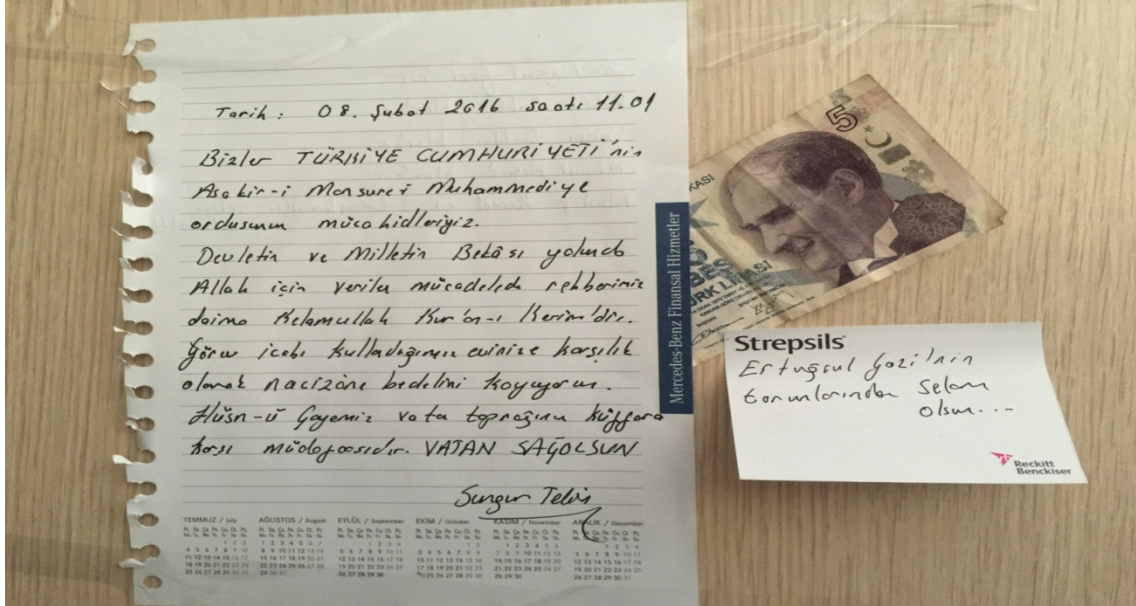 Tarih : 08. Şubat 2016 saati 11.01
Bizler TÜRKİYE CUMHURİYETİ'nin
Asakir-i Mansure-i Muhammediye
ordusunun mücahidleriyiz.
Devletin ve Milletin Bekâsı yolunda
Allah için verilen mücadelede rehberimiz
daima Kelamullah Kur'an-ı Kerim'dir.
Görev icabı kulladığımız evinize karşılık
olarak nacizane bedelini koyuyorum.
Hüsn-ü Gayemiz vata toprağının küffara
karşı müdafaasıdır. VATAN SAĞOLSUN
Sungur
TEMMUZ / July AĞUSTOS / August EYLÜL / September EKİM / October KASIM / November ARALIK / December
Mercedes-Benz Finansal Hizmetler
5
KASI
BEŞ
TÜRK LİRASI
Strepsils
Ertuğrul Gazi'nin
torunlarından Selam
olsun...
Reckitt
Benckiser